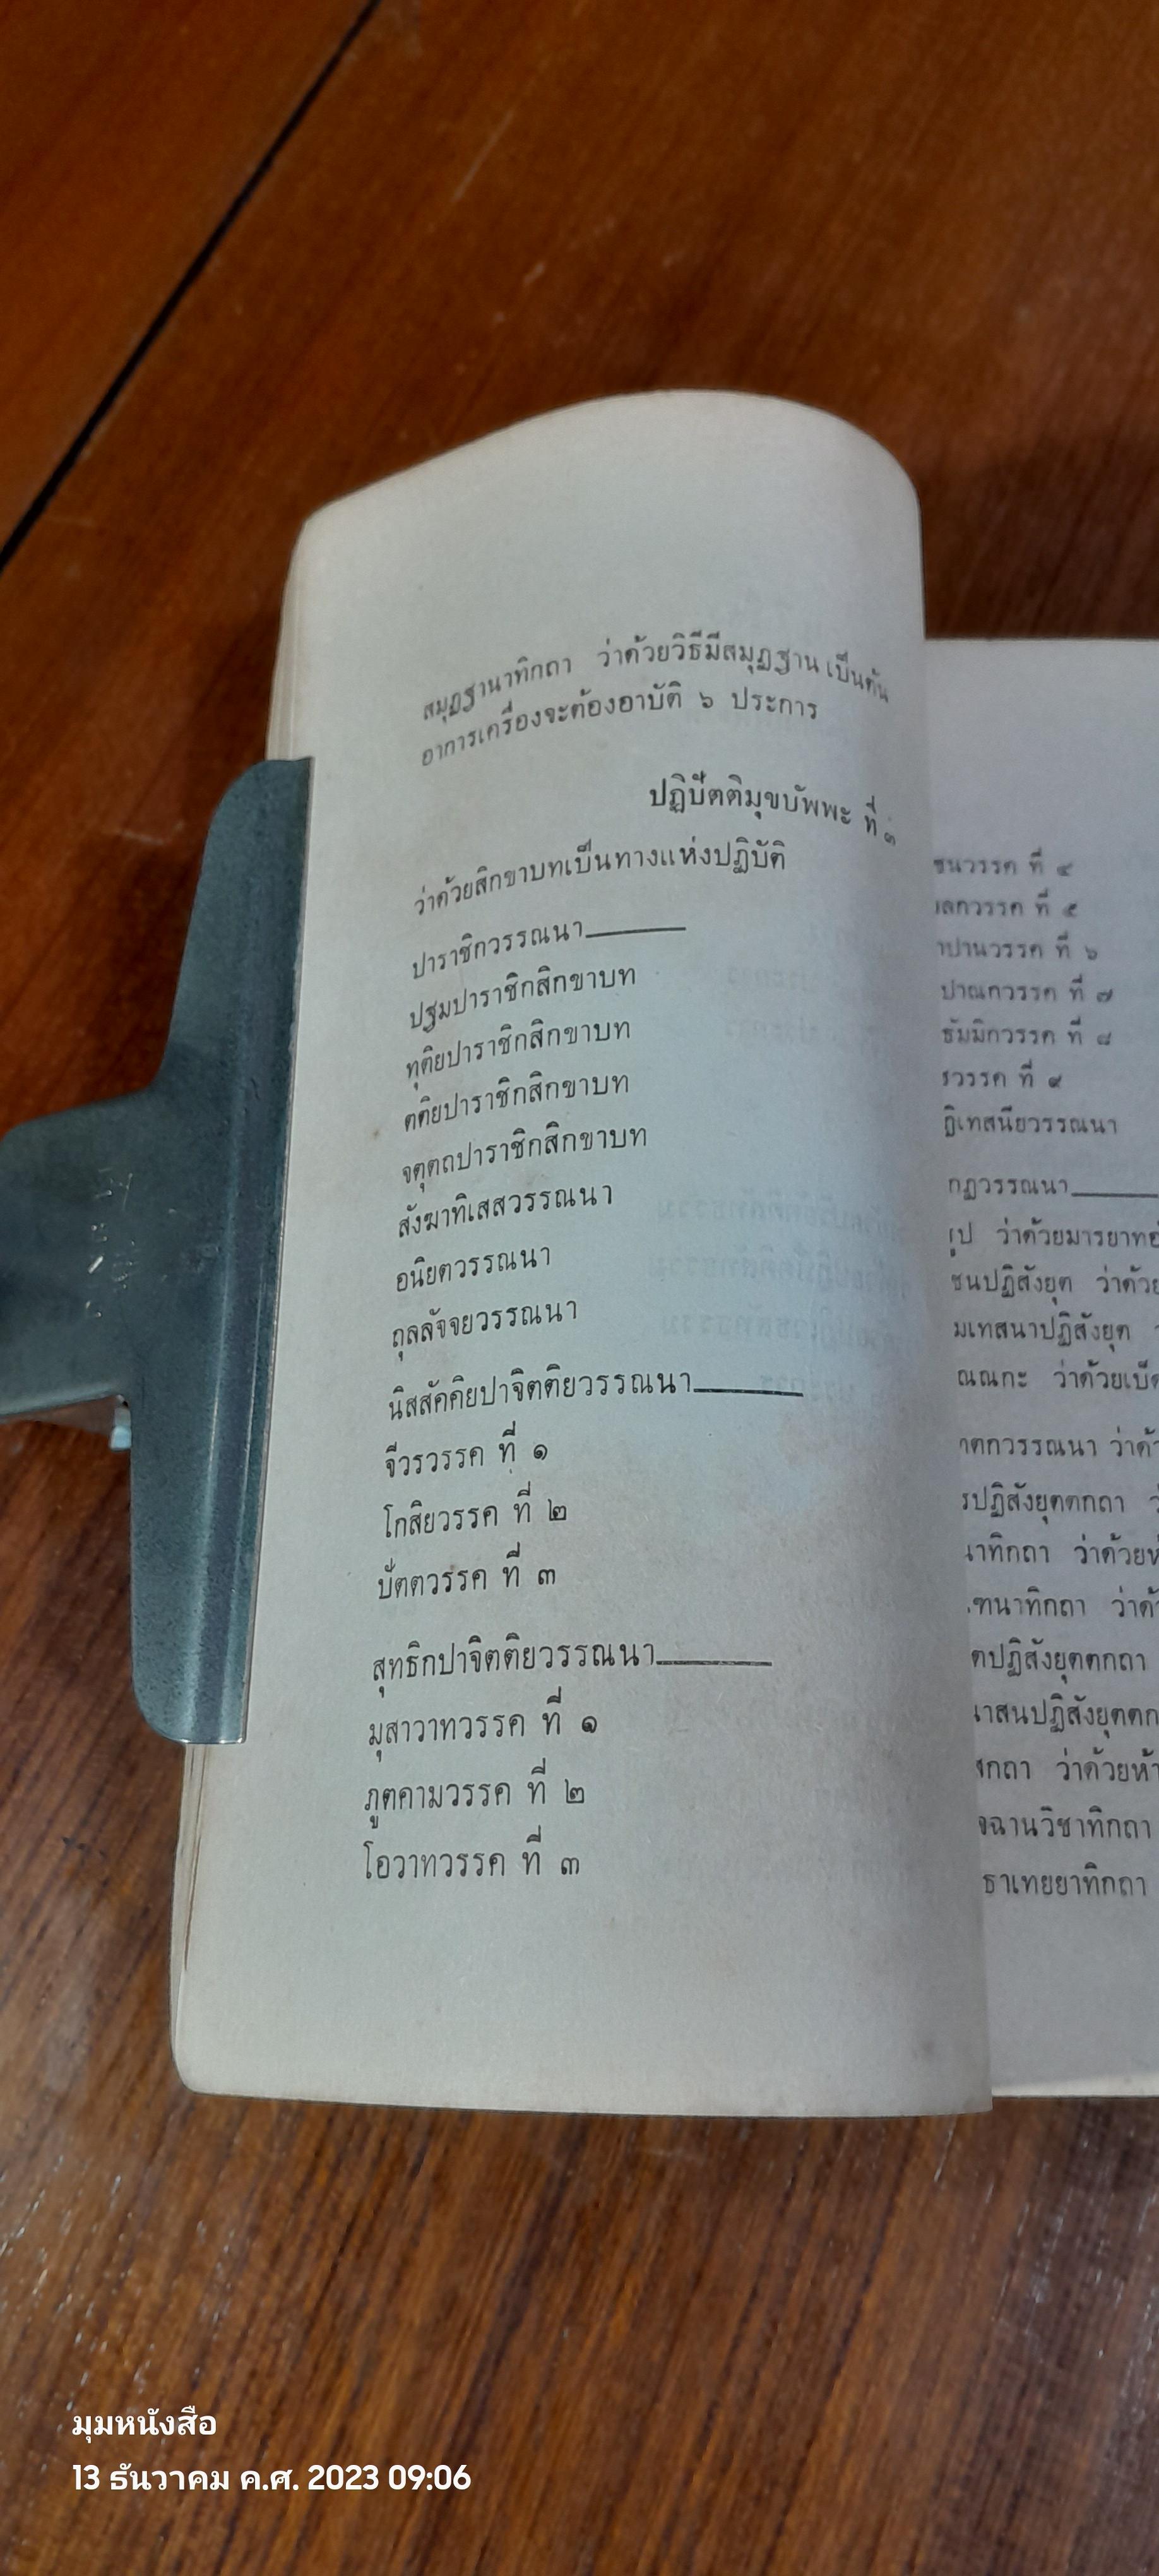 สมุฏฐานาทิกถา ว่าด้วยวิธีมีสมุฏฐาน เป็นต้น
อาการเครื่องจะต้องอาบัติ ๖ ประการ
ปฏิปัตติมุขบัพพะ ที่ ๓
ว่าด้วยสิกขาบทเป็นทางแห่งปฏิบัติ
ปาราชิกวรรณนา
ปฐมปาราชิกสิกขาบท
ทุติยปาราชิกสิกขาบท
ตติยปาราชิกสิกขาบท
จตุตถปาราชิกสิกขาบท
สังฆาทิเสสวรรณนา
อนิยตวรรณนา
ถุลลัจจยวรรณนา
นิสสัคคิยปาจิตติยวรรณนา
จีวรวรรค ที่ ๑
โกสิยวรรค ที่ ๒
ปัตตวรรค ที่ ๓
สุทธิกปาจิตติยวรรณนา
มุสาวาทวรรค ที่ ๑
ภูตคามวรรค ที่ ๒
โอวาทวรรค ที่ ๓
ชนวรรค ที่ ๔
ลกวรรค ที่ ๕
าปานวรรค ที่ ๖
ปาณกวรรค ที่ ๗
ธัมมิกวรรค ที่ ๘
วรรค ที่ ๙
ฏิเทสนียวรรณนา
กฏวรรณนา
รูป ว่าด้วยมารยาท
ชนปฏิสังยุต ว่าด้วย
มเทสนาปฏิสังยุต
ณณกะ ว่าด้วยเบ็ด
าตกวรรณนา ว่าด้
รปฏิสังยุตตกถา
นาทิกถา ว่าด้วยห
ฑนาทิกถา ว่าด้
ตปฏิสังยุตตกถา
นาสนปฏิสังยุตตก
กถา ว่าด้วยห้า
จฉานวิชาทิกถา
ธาเทยยาทิกถา
มุมหนังสือ
13 ธันวาคม ค.ศ. 2023 09:06